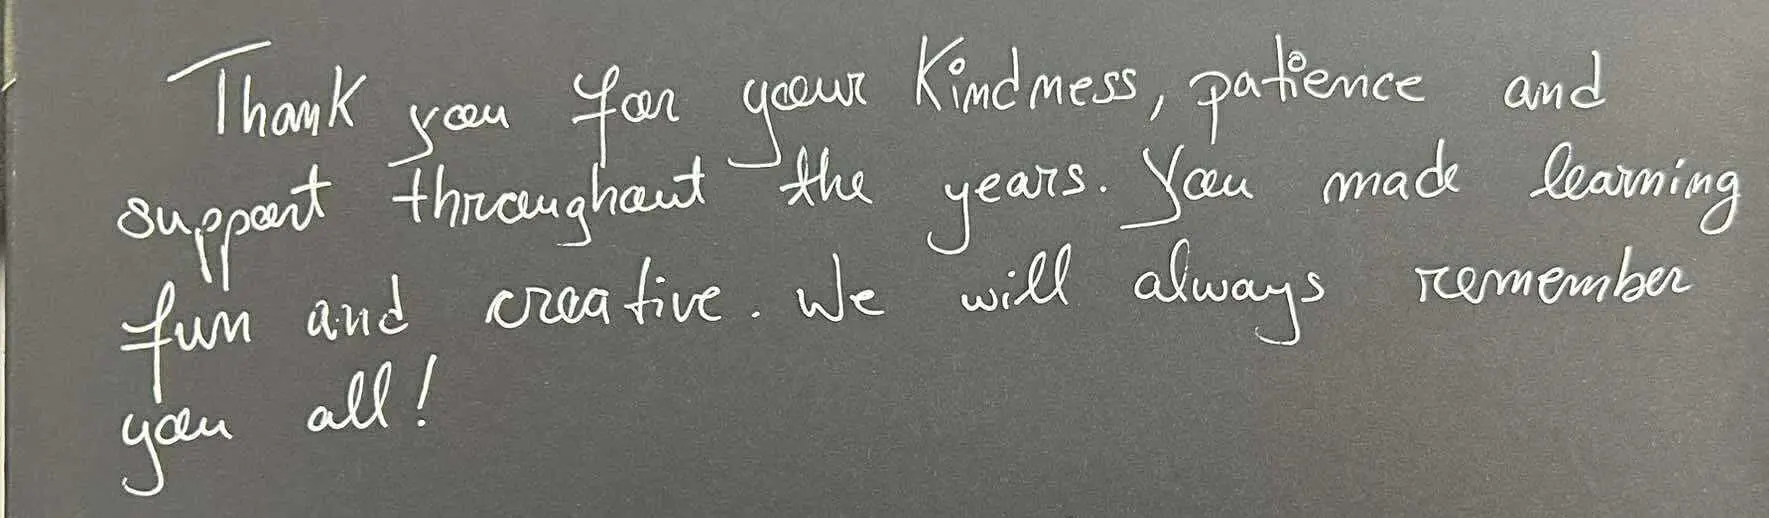 Thank you for your Kindness, patience and
support throughout the years. You made learning
fun and creative. We will always remember
you all!